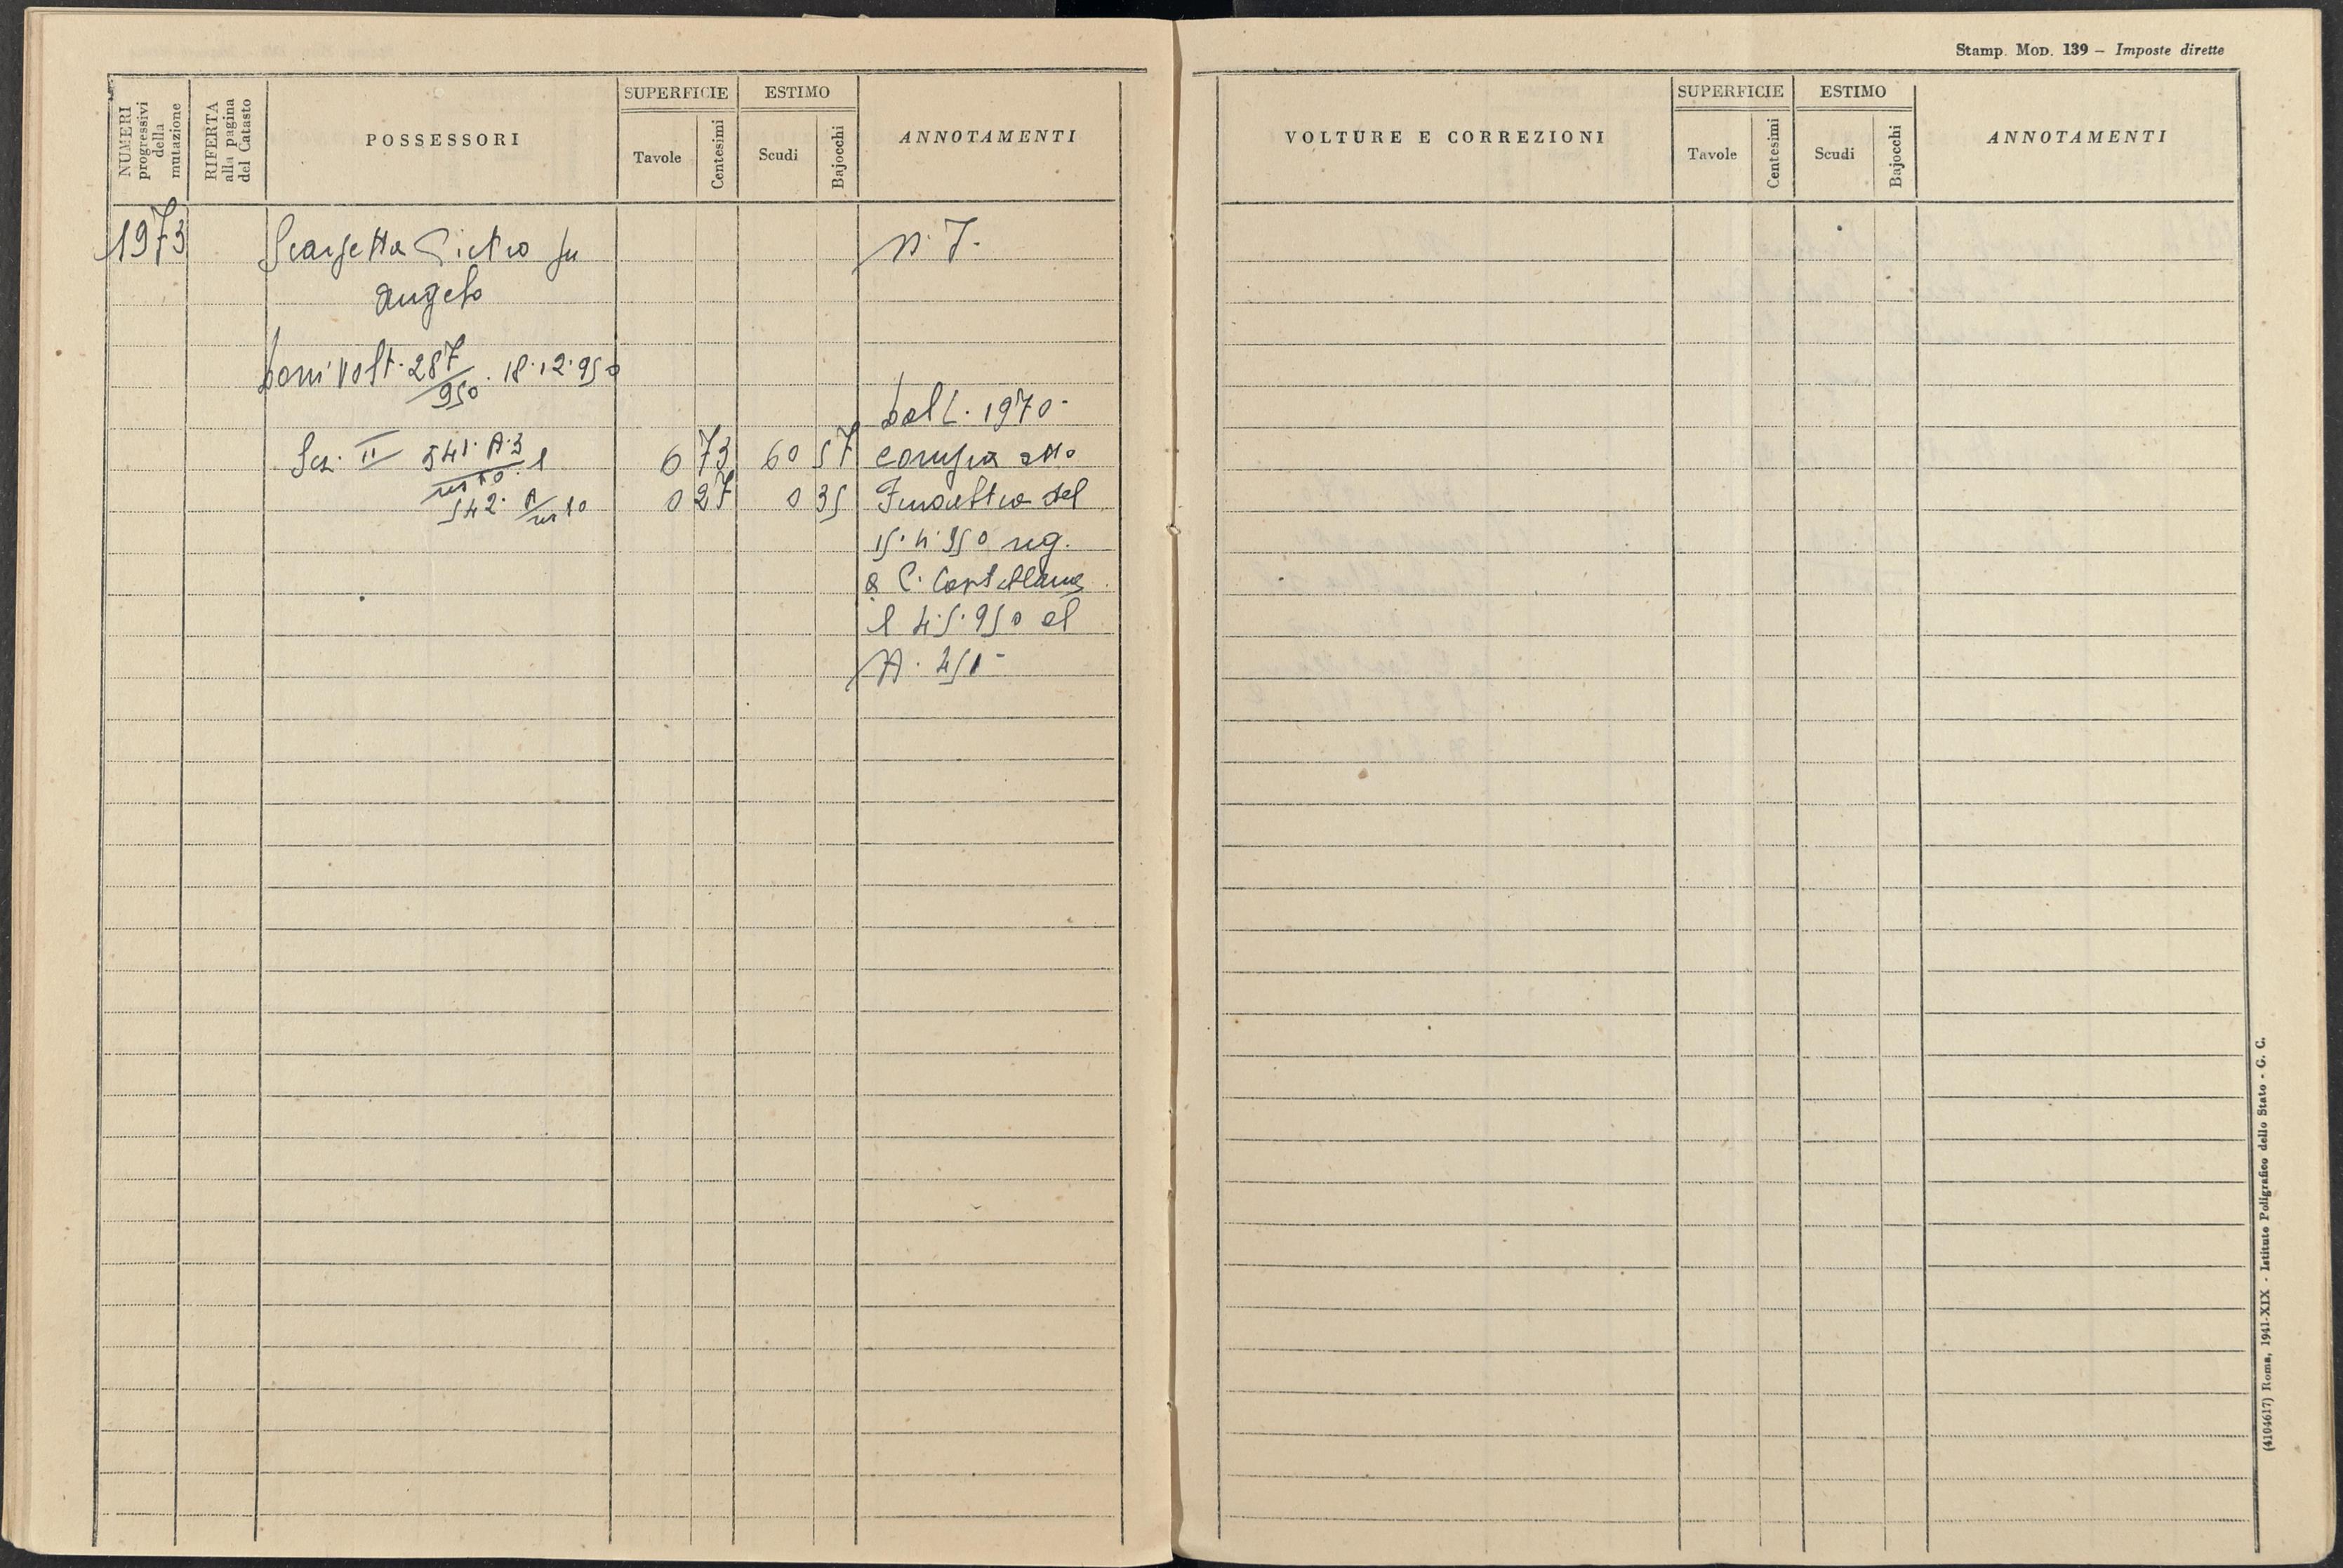 Stamp. Mod. 139 – Imposte dirette
NUMERI progressivi della mutazione
RIFERTA alla pagina del Catasto
POSSESSORI
SUPERFICIE
Tavole
Centesimi
ESTIMO
Scudi
Bajocchi
ANNOTAMENTI
VOLTURE E CORREZIONI
SUPERFICIE
Tavole
Centesimi
ESTIMO
Scudi
Bajocchi
ANNOTAMENTI
1973
Pietro fu
N. 7-
Angelo
volt. 287/950. 18.12.950
dal C. 1970-
Sez. II 541. A.3
6 73 60 57
compra atto
542.
0 27 0 35
del
15.4.950 reg.
a C. Castellana
l 4.5.950 al
N. 451-
(4104617) Roma, 1941-XIX - Istituto Poligrafico dello Stato - G. C.